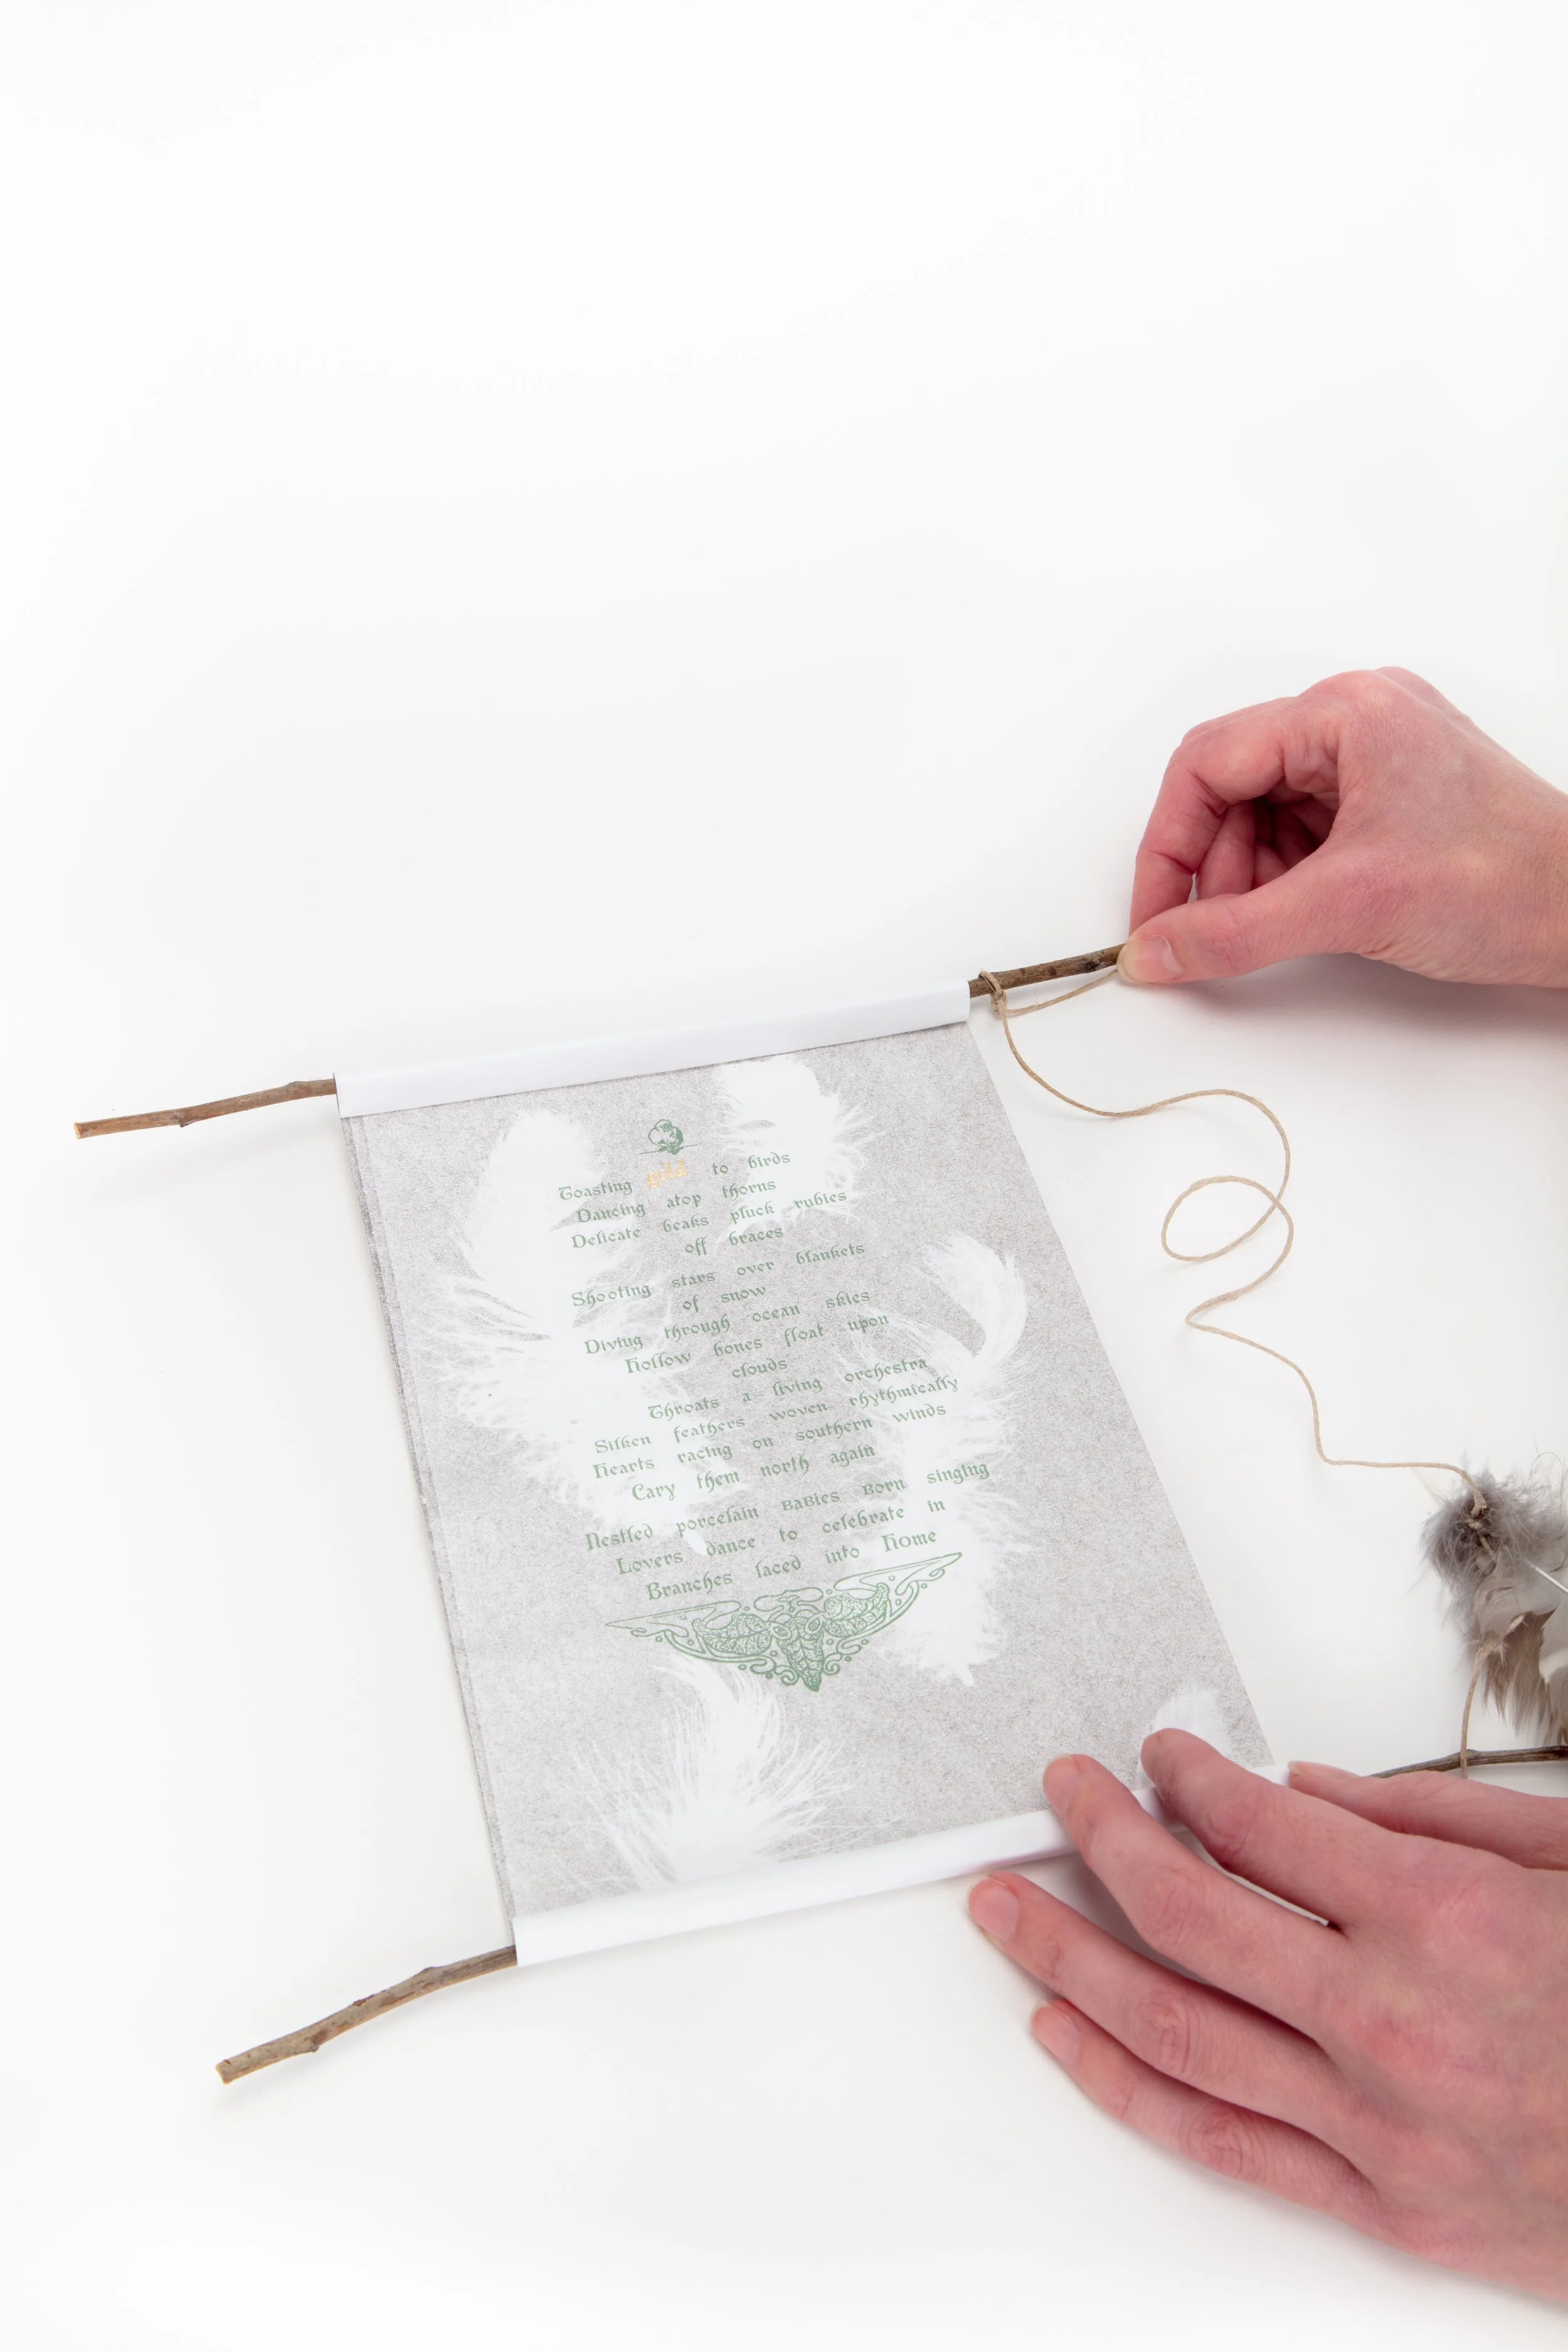 Toasting gold to birds
Dancing atop thorns
Delicate beaks pluck rubies
off braces
Shooting stars over blankets
of snow
Diving through ocean skies
Hollow bones float upon
clouds
Throats a living orchestra
Silken feathers woven rhythmically
Hearts racing on southern winds
Cary them north again
Nestled porcelain BaBies Born singing
Lovers dance to celebrate in
Branches laced into Home